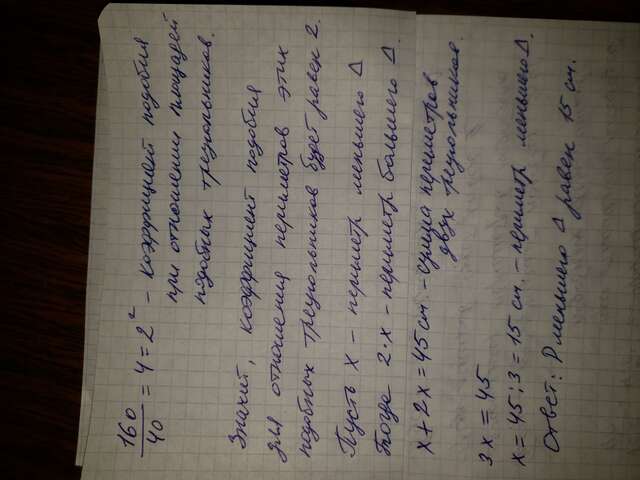 160/40 = 4 = 2² – коэффициент подобия
при отношении площадей
подобных треугольников.
Значит, коэффициент подобия
для отношения периметров этих
подобных треугольников будет равен 2.
Пусть x – периметр меньшего Δ
Тогда 2·x – периметр большего Δ.
x + 2x = 45 см – сумма периметров
двух треугольников.
3x = 45
x = 45 : 3 = 15 см. – периметр меньшего Δ.
Ответ: P меньшего Δ равен 15 см.